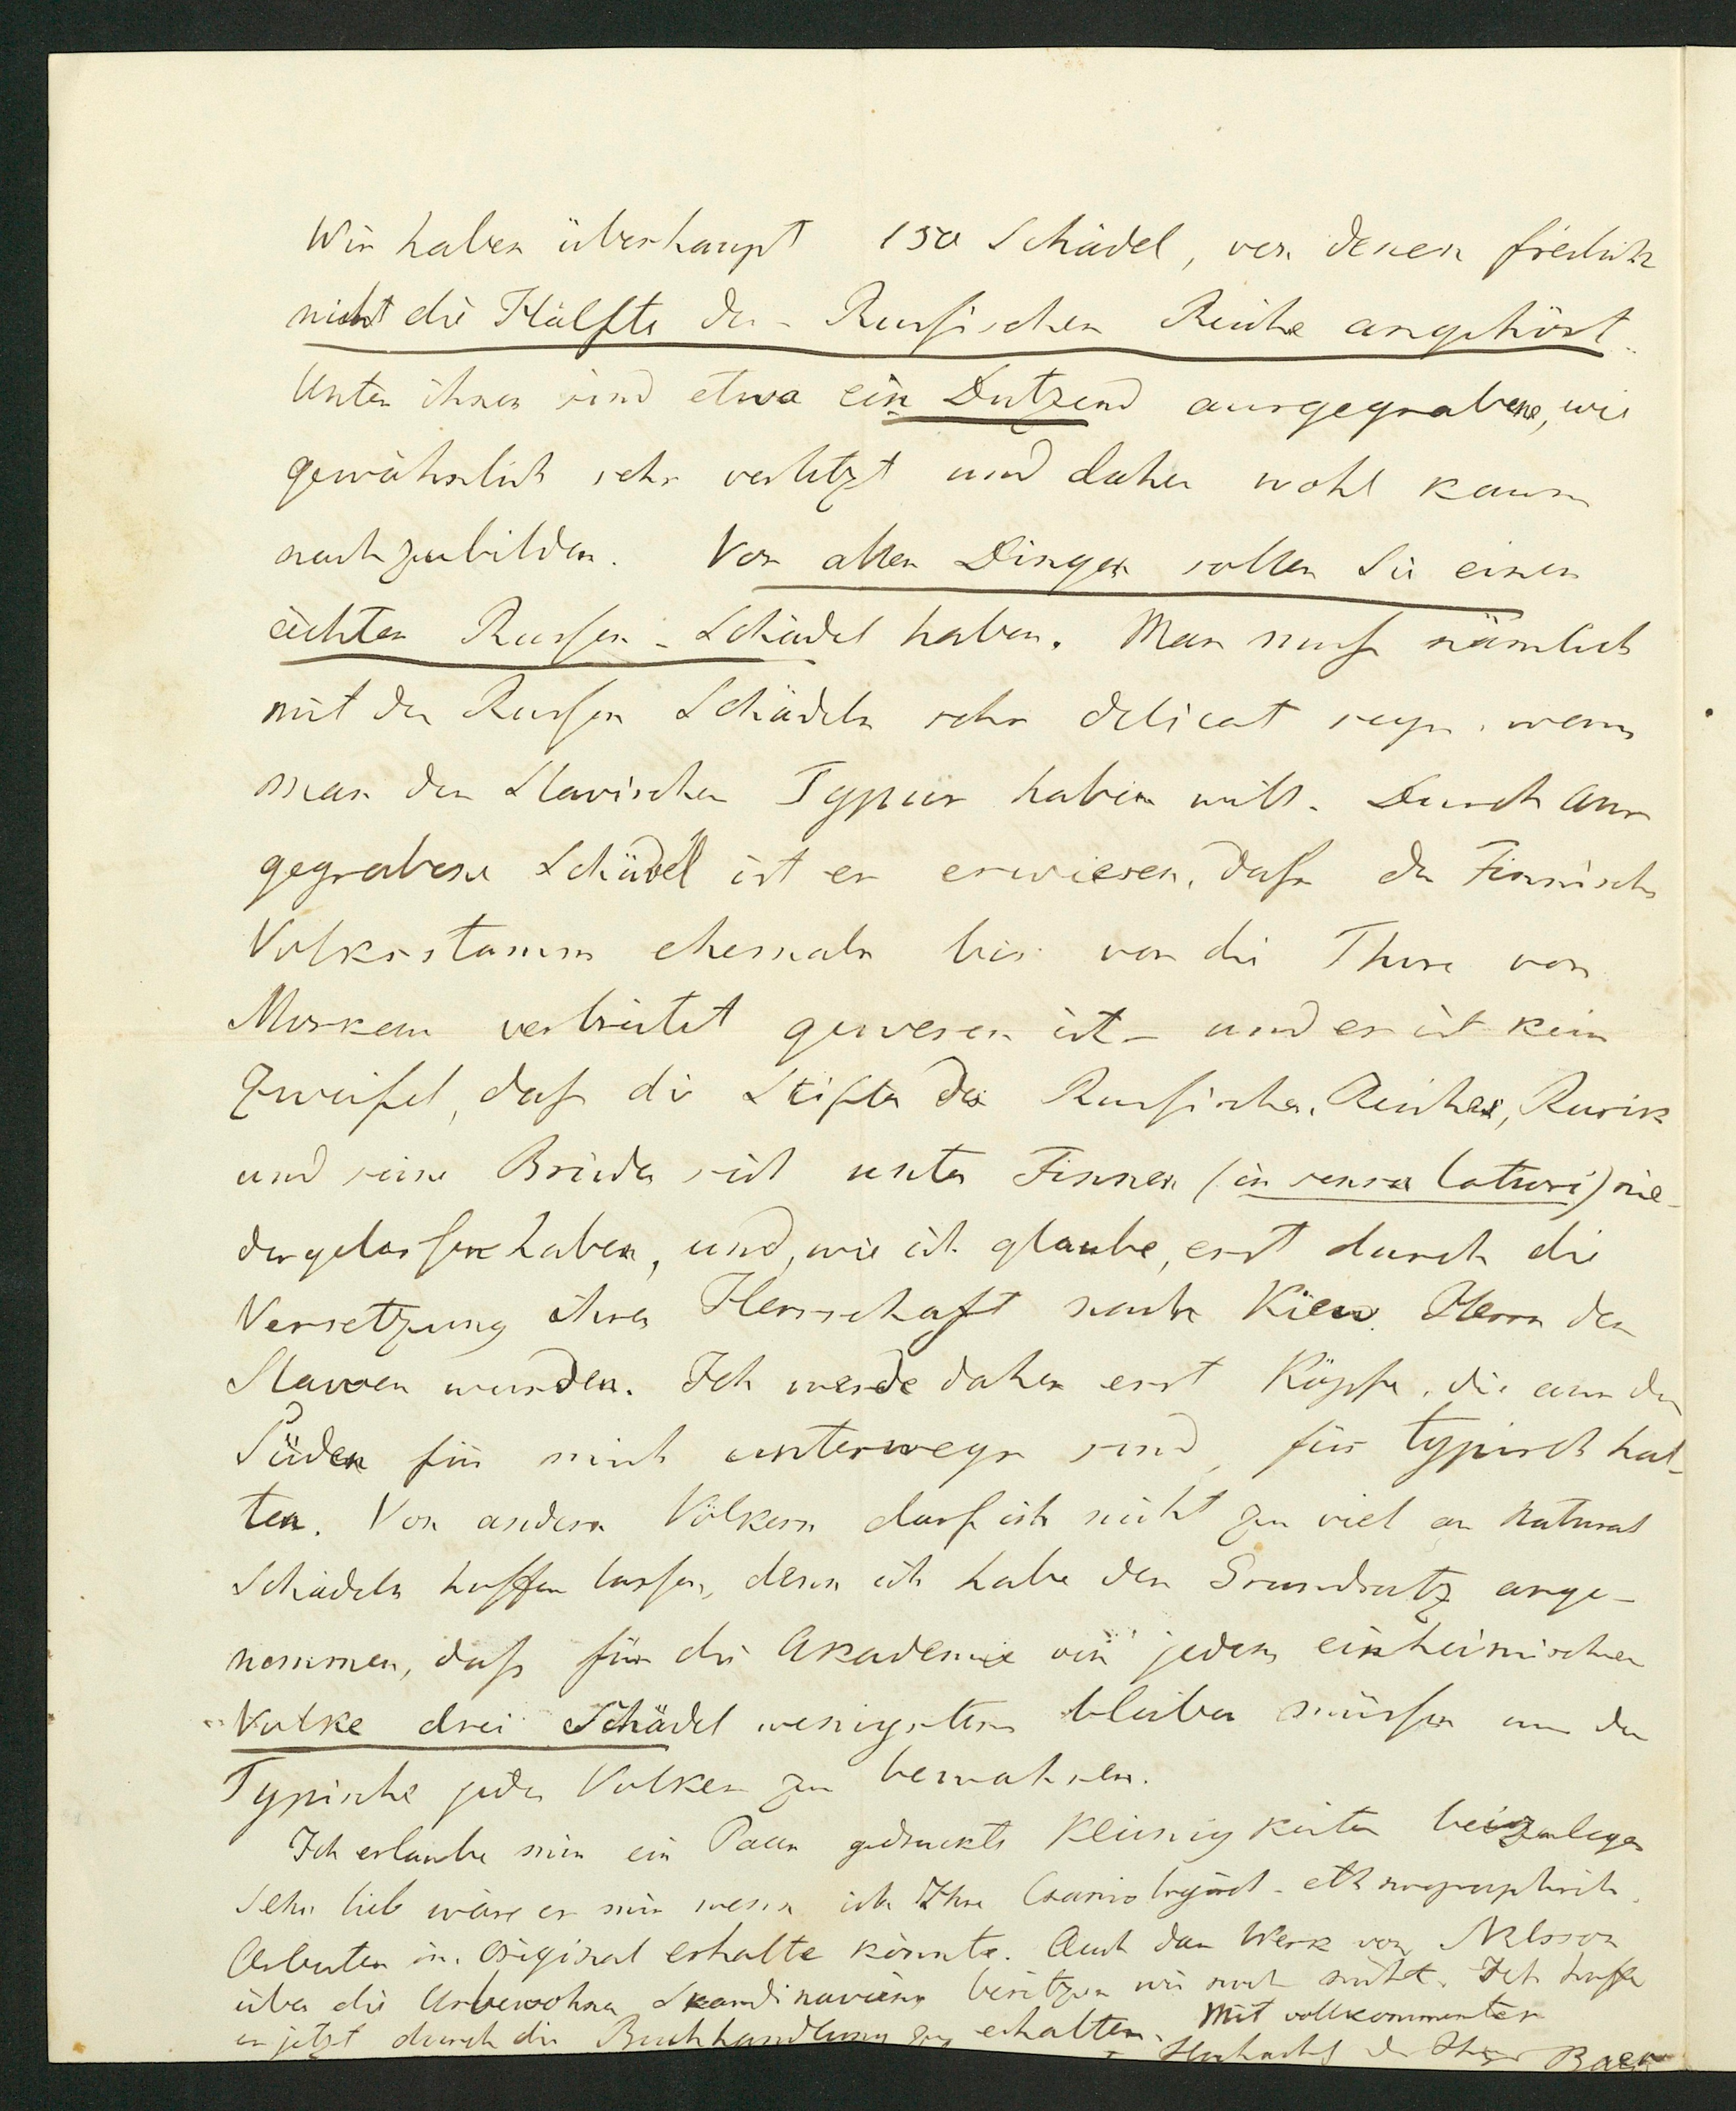 Wir haben überhaupt 150 Schädel, von denen freilich
nicht die Hälfte dem Russischen Reiche angehört.
Unter ihnen sind etwa ein Dutzend ausgegrabene, wie
gewöhnlich sehr verletzt und daher wohl kaum
nachzubilden. Vor allen Dingen sollen Sie einen
ächten Russen-Schädel haben. Man muß nämlich
mit den Russen Schädeln sehr delicat seyn, wenn
man den Slavischen Typus haben will. Durch aus
gegrabene Schädel ist es erwiesen, daß der Finnische
Volksstamm ehemals bis vor die Thore von
Moskau verbreitet gewesen ist – und es ist kein
Zweifel, daß die Stifter des Russischen Reiches, Rurik
und seine Brüder sich unter Finnen (in sensu latiori) nie-
dergelassen haben, und, wie ich glaube, erst durch die
Versetzung ihrer Herrschaft nach Kiew Herrn der
Slawen wurden. Ich werde daher erst Köpfe, die aus dem
Süden für mich unterwegs sind, für typisch hal-
ten. Von andern Völkern darf ich nicht zu viel an Natural
Schädeln hoffen lassen, denn ich habe den Grundsatz ange-
nommen, daß für die Akademie von jedem einheimischen
Volke drei Schädel wenigstens bleiben müssen um das
Typische jedes Volkes zu bewahren.
Ich erlaube mir ein Paar gedruckte Kleinigkeiten beizulegen
Sehr lieb wäre es mir wenn ich Ihre Craniologisch-ethnographisch.
Arbeiten im Original erhalte könnte. Auch das Werk von Nilsson
über die Urbewohner Skandinaviens besitzen wir noch nicht. Ich hoffe
es jetzt durch die Buchhandlung zu erhalten. Mit vollkommenster
Hochacht der Ihrige Baer